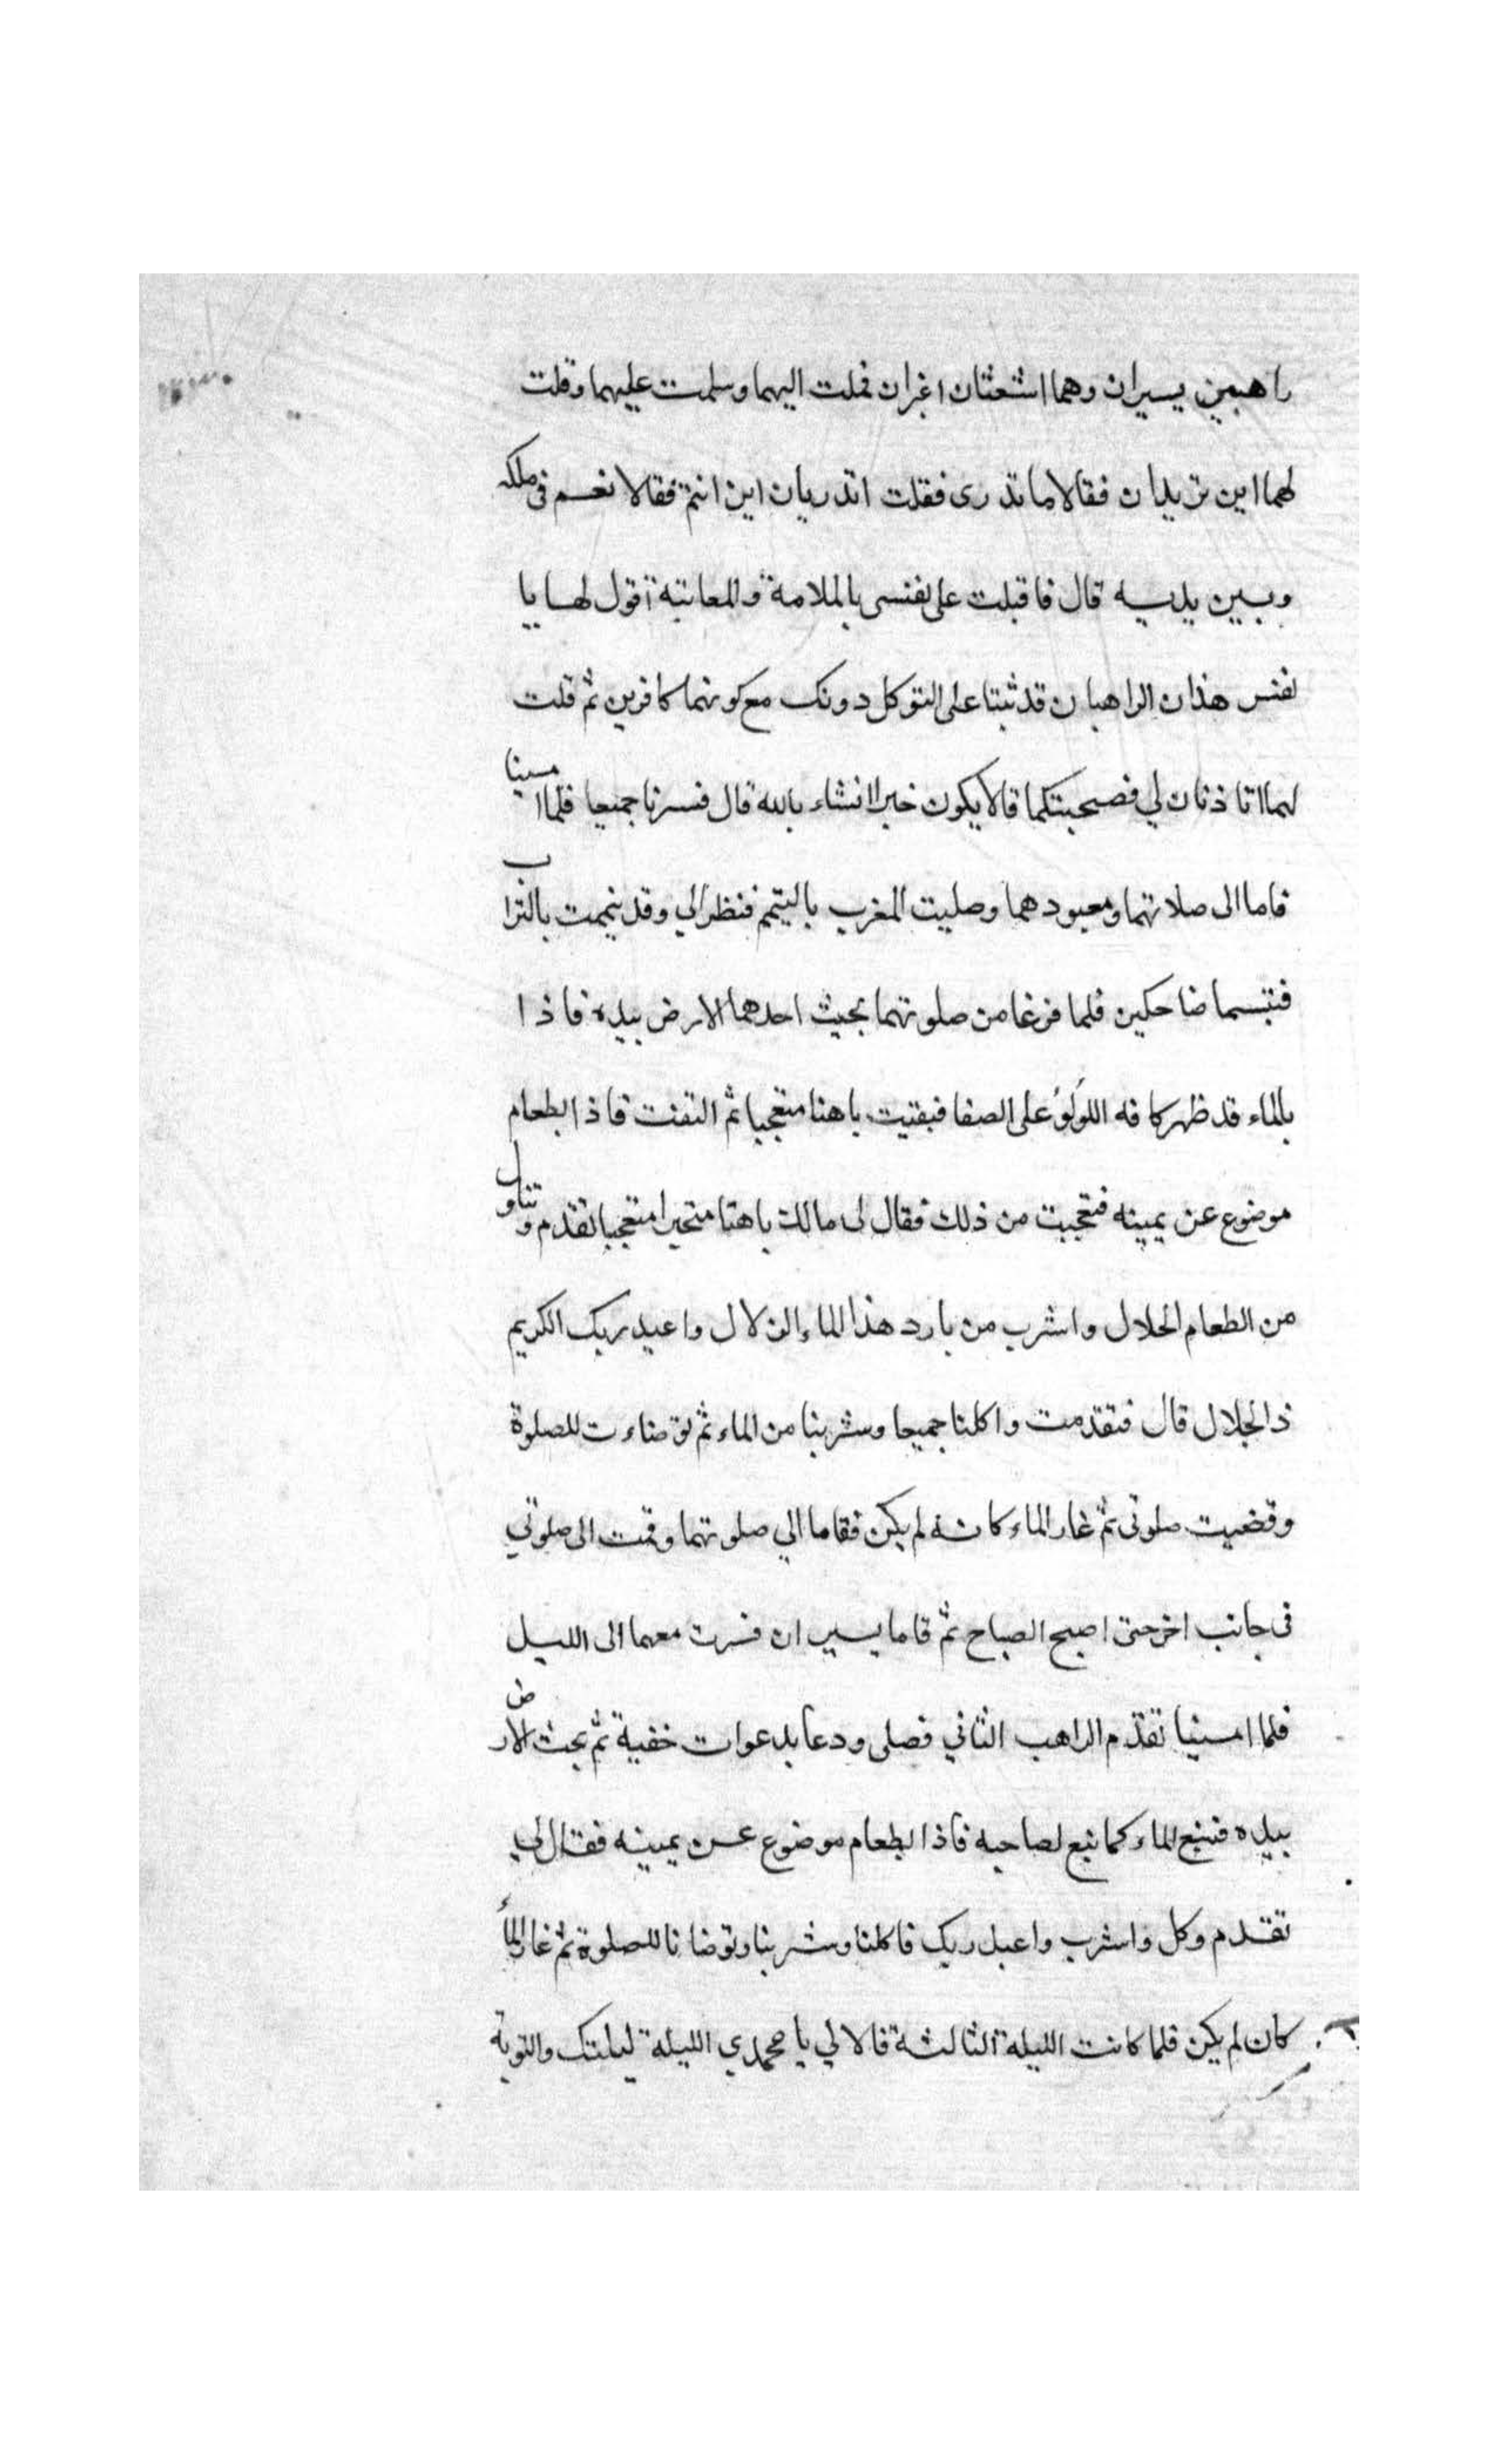 راهبين يسيران وهما اشعثان اغبران فملت اليهما وسلمت عليهما وقلت
لهما اين تريدان فقالا ما ندرى فقلت اتدريان اين انتم فقالا نعم فى ملكه
وبين يديه قال فاقبلت على نفسى بالملامة والمعاتبة اقول لها يا
نفس هذان الراهبان قد ثبتا على التوكل دونك مع كونهما كافرين ثم قلت
لهما اتاذنان لي فصحبتكما قالا يكون خيرا انشاء بالله قال فسرنا جميعا فلما امسينا
قاما الى صلاتهما ومعبودهما وصليت المغرب باليتمم فنظرا لي وقد تيممت بالتراب
فتبسما ضاحكين فلما فرغا من صلوتهما بحيث احدهما الارض بيده فاذا
بالماء قد ظهر كافه اللولؤ على الصفا فبقيت باهتا متعجبا ثم التفت فاذا بطعام
موضوع عن يمينه فتعجبت من ذلك فقال لى مالك باهتا متحيرا متعجبا تقدم وتناول
من الطعام الحلال واشرب من بارد هذا الماء الزلال واعبد ربك الكريم
ذالجلال قال فتقدمت واكلنا جميعا وشربنا من الماء ثم توضاءت للصلوة
وقضيت صلوتى ثم غار الماء كانه لم يكن فقاما الي صلوتهما وقمت الى صلوتي
فى جانب اخر حتى اصبح الصباح ثم قاما يسيران فسرت معهما الى الليل
فلما امسينا تقدم الراهب الثاني فصلى ودعا بدعوات خفية ثم بحث الارض
بيده فنبع الماء كما نبع لصاحبه فاذا بطعام موضوع عن يمينه فقال لي
تقدم وكل واشرب واعبد ربك فاكلنا وشربنا وتوضانا للصلوة ثم غار الماء
كان لم يكن فلما كانت الليلة الثالثة قالا لي يا محمدي الليلة ليلتك والنوبة